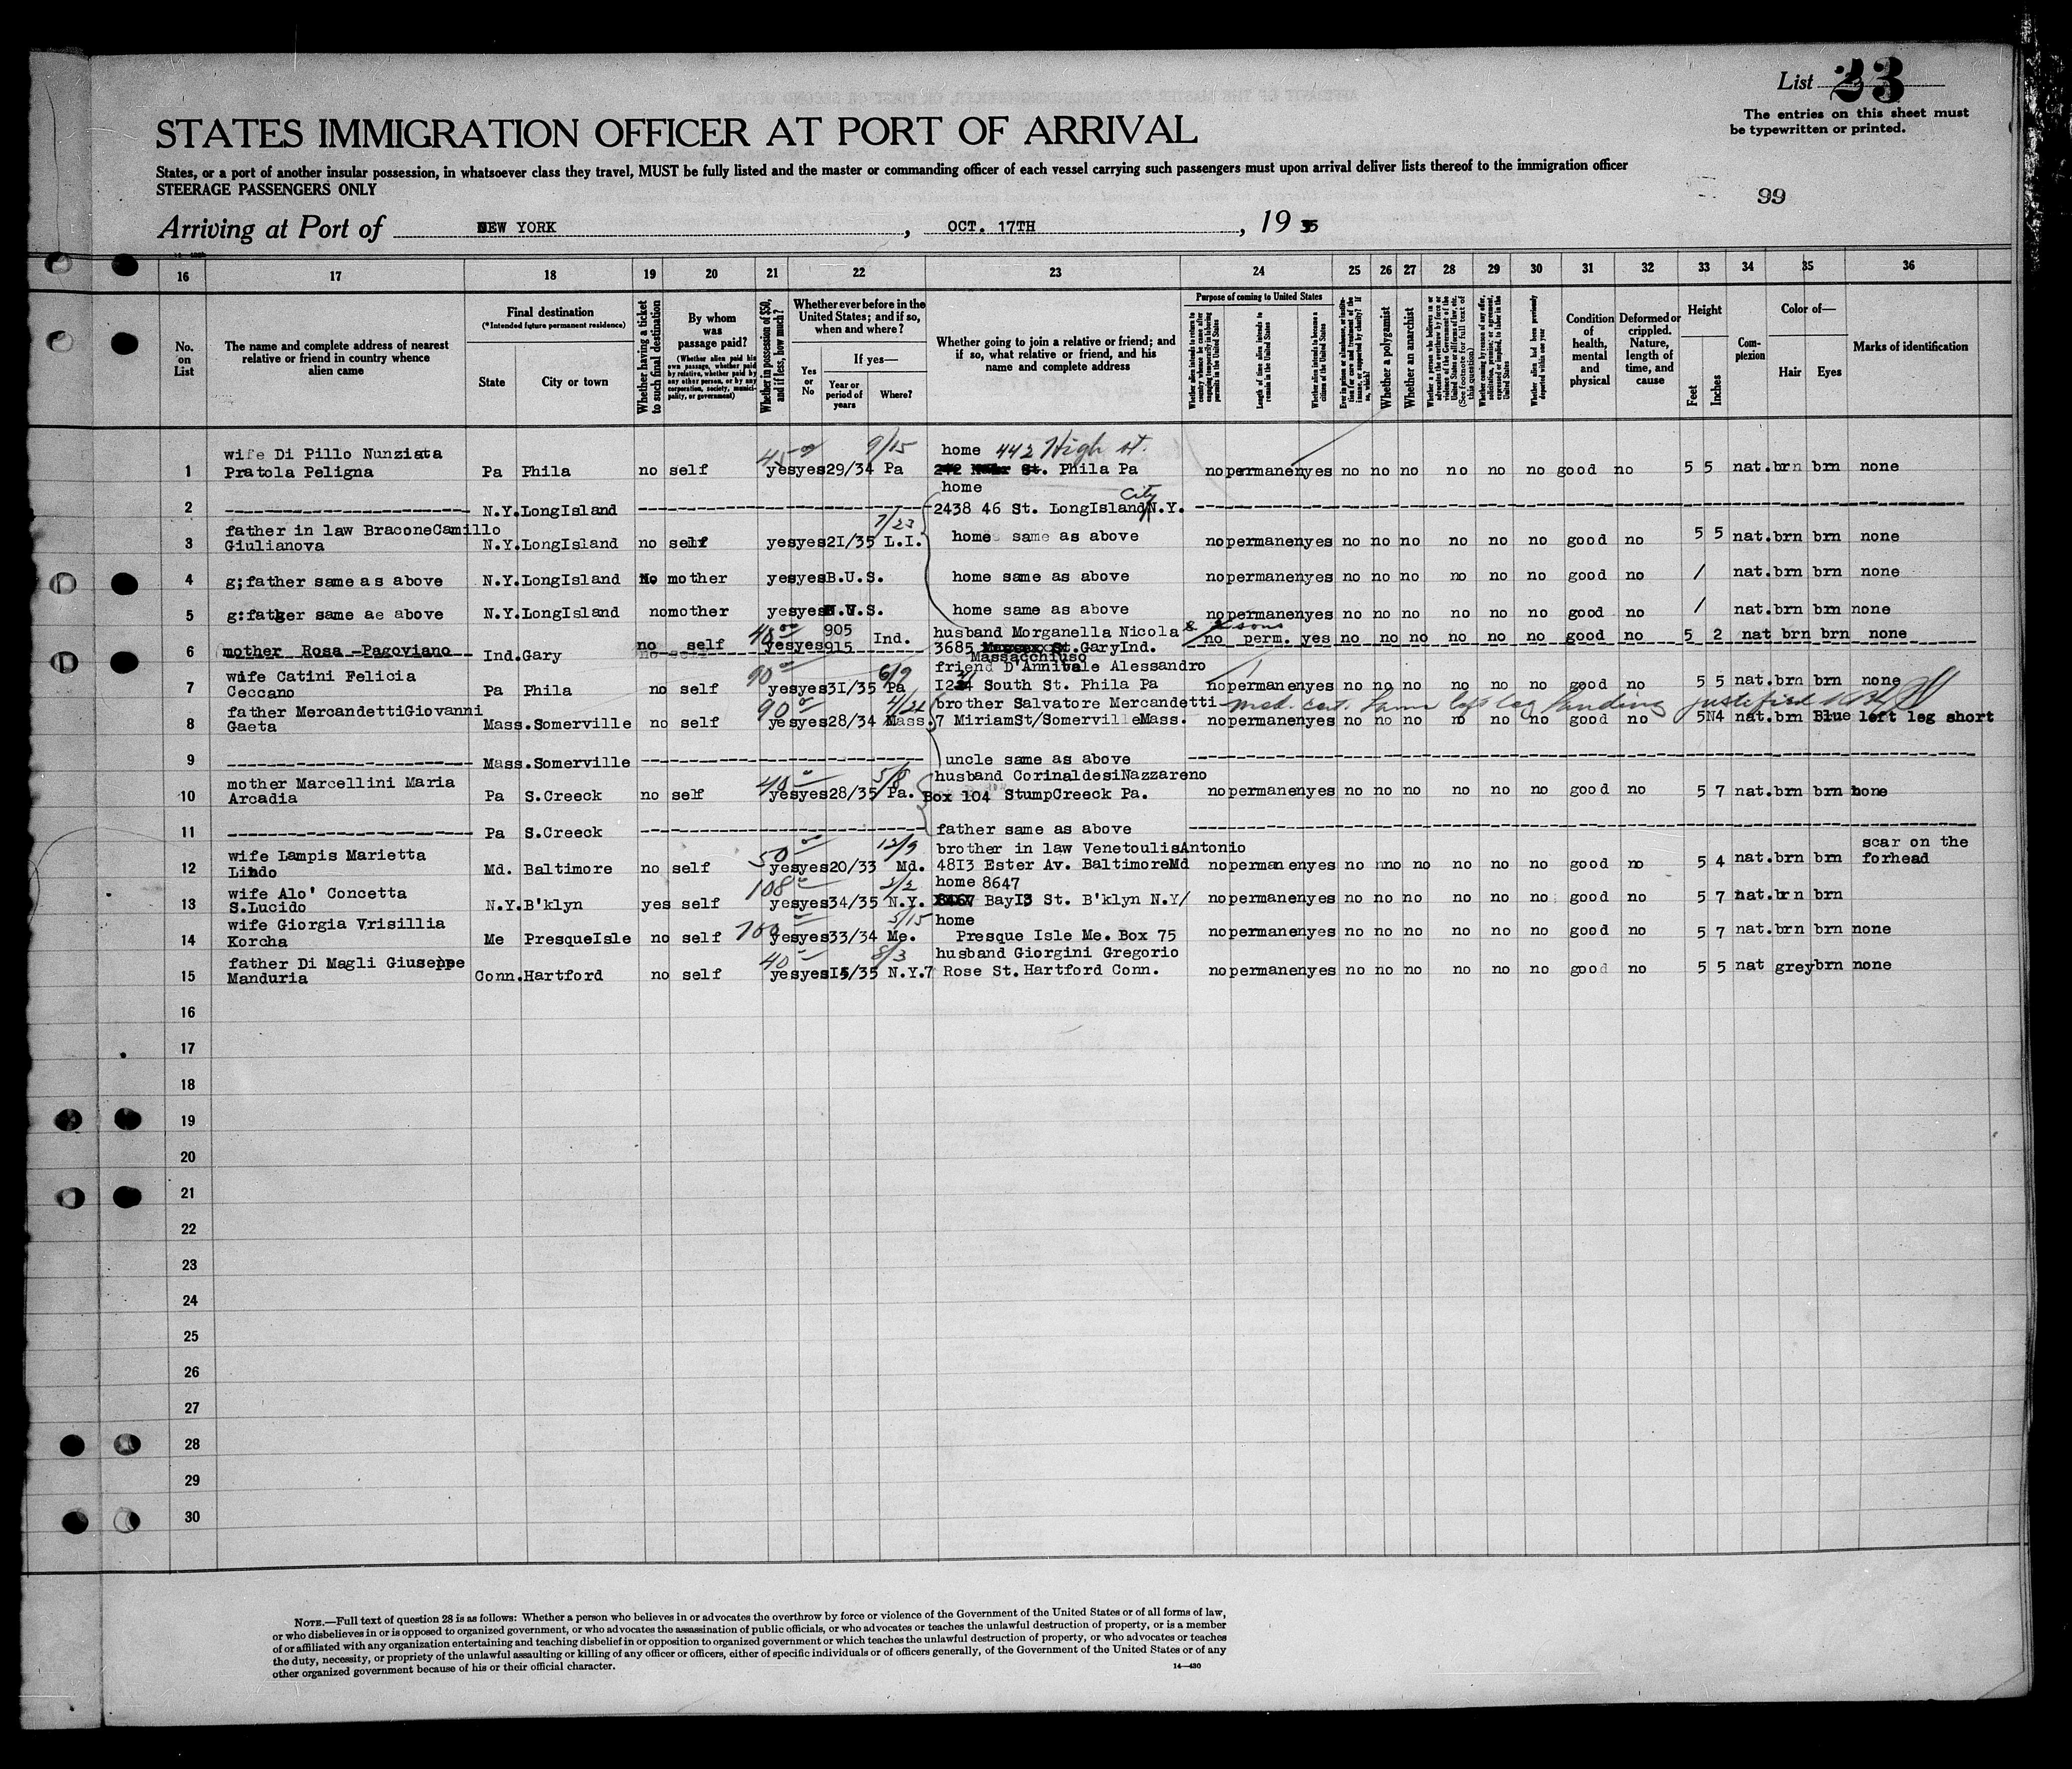 List 23
The entries on this sheet must
be typewritten or printed.
STATES IMMIGRATION OFFICER AT PORT OF ARRIVAL
States, or a port of another insular possession, in whatsoever class they travel, MUST be fully listed and the master or commanding officer of each vessel carrying such passengers must upon arrival deliver lists thereof to the immigration officer
STEERAGE PASSENGERS ONLY
99
Arriving at Port of NEW YORK , OCT. 17TH , 19 35
16 17 18 19 20 21 22 23 24 25 26 27 28 29 30 31 32 33 34 35 36
No. on List
The name and complete address of nearest relative or friend in country whence alien came
Final destination
(*Intended future permanent residence)
State
City or town
Whether having a ticket to such final destination
By whom was passage paid?
(Whether alien paid his own passage, whether paid by relative, whether paid by any other person, or by any corporation, society, municipality, or government)
Whether in possession of $50, and if less, how much?
Whether ever before in the United States; and if so, when and where?
Yes or No
If yes—
Year or period of years
Where?
Whether going to join a relative or friend; and if so, what relative or friend, and his name and complete address
Purpose of coming to United States
Length of time alien intends to remain in the United States
Whether alien intends to become a citizen of the United States
Whether a polygamist
Whether an anarchist
Whether alien had been previously deported within one year
Condition of health, mental and physical
Deformed or crippled. Nature, length of time, and cause
Height
Feet
Inches
Complexion
Color of—
Hair
Eyes
Marks of identification
wife Di Pillo Nunziata 45 9/15 home 442 High st.
1 Pratola Peligna Pa Phila no self yes yes 29/34 Pa St. Phila Pa no permanen yes no no no no no no good no 5 5 nat. brn brn none
home
City
2 N.Y. LongIsland 2438 46 St. LongIsland N.Y.
father in law BraconeCamillo 7/23
3 Giulianova N.Y. LongIsland no self yes yes 21/35 L.I. home same as above no permanen yes no no no no no no good no 5 5 nat. brn brn none
4 g;father same as above N.Y. LongIsland No mother yes yes B.U.S. home same as above no permanen yes no no no no no no good no / nat. brn brn none
5 g:fatger same ae above N.Y. LongIsland no mother yes yes .S. home same as above no permanen yes no no no no no no good no / nat. brn brn none
905 husband Morganella Nicola & 2 sons
6 mother Rosa Pagoviano Ind. Gary no self yes yes 915 Ind. 3685 St. GaryInd. no perm. yes no no no no no no good no 5 2 nat brn brn none
Massacchiuso
wife Catini Felicia 90 6/9 friend D'Annibale Alessandro
7 Ceccano Pa Phila no self yes yes 31/35 Pa South St. Phila Pa no permanen yes no no no no no no good no 5 5 nat. brn brn none
father MercandettiGiovanni 90 brother Salvatore Mercandetti med. cert. left leg justified
8 Gaeta Mass. Somerville no self yes yes 28/34 Mass. 7 MiriamSt/SomervilleMass. no permanen yes no no no no no no good no 5N4 nat. brn Blue left leg short
9 Mass. Somerville uncle same as above
mother Marcellini Maria 40 5/8 husband CorinaldesiNazzareno
10 Arcadia Pa S.Creeck no self yes yes 28/35 Pa. Box 104 StumpCreeck Pa. no permanen yes no no no no no no good no 5 7 nat. brn brn none
11 Pa S.Creeck father same as above
wife Lampis Marietta 50 12/9 brother in law VenetoulisAntonio scar on the
12 Lindo Md. Baltimore no self yes yes 20/33 Md. 4813 Ester Av. BaltimoreMd no permanen yes no nno no no no no good no 5 4 nat. brn brn forhead
wife Alo' Concetta 108 2/2 home 8647
13 S.Lucido N.Y. B'klyn yes self yes yes 34/35 N.Y. Bay13 St. B'klyn N.Y/ no permanen yes no no no no no no good no 5 7 nat. brn brn
wife Giorgia Vrisillia 100 5/15 home
14 Korcha Me PresqueIsle no self yes yes 33/34 Me. Presque Isle Me. Box 75 no permanen yes no no no no no no good no 5 7 nat. brn brn none
father Di Magli Giuseppe 40 8/3 husband Giorgini Gregorio
15 Manduria Conn. Hartford no self yes yes 15/35 N.Y. 7 Rose St. Hartford Conn. no permanen yes no no no no no no good no 5 5 nat grey brn none
16
17
18
19
20
21
22
23
24
25
26
27
28
29
30
NOTE.—Full text of question 28 is as follows: Whether a person who believes in or advocates the overthrow by force or violence of the Government of the United States or of all forms of law,
or who disbelieves in or is opposed to organized government, or who advocates the assassination of public officials, or who advocates or teaches the unlawful destruction of property, or is a member
of or affiliated with any organization entertaining and teaching disbelief in or opposition to organized government or which teaches the unlawful destruction of property, or who advocates or teaches
the duty, necessity, or propriety of the unlawful assaulting or killing of any officer or officers, either of specific individuals or of officers generally, of the Government of the United States or of any
other organized government because of his or their official character.
14—430